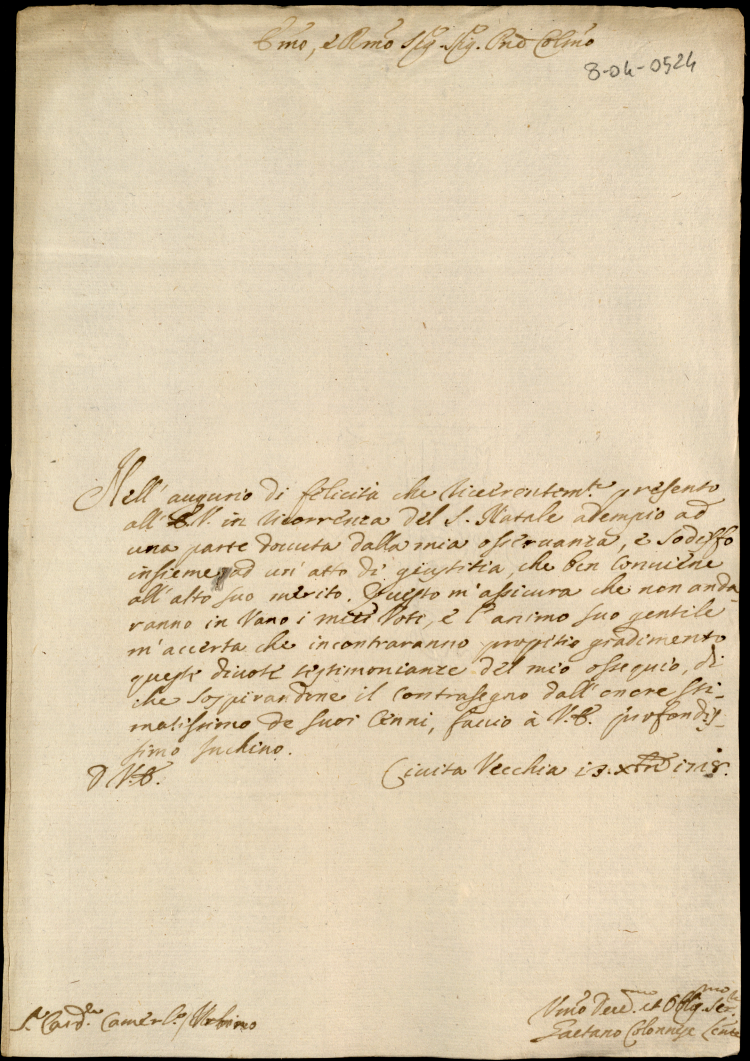 Emo, e Rmo Sig. Sig. Pnē Colmo
8-04-0524
Nell' augurio di felicità che riverentemte. presento
all' E.V. in ricorrenza del S. Natale adempio ad
una parte dovuta dalla mia osservanza, e sodisfo
insieme ad un' atto di giustitia, che ben conviene
all' alto suo merito. Questo m' assicura che non anda-
ranno in Vano i miei Voti, e l' animo suo gentile
m' accerta che incontraranno propitio gradimento
queste divote testimonianze del mio ossequio, di
che sospirandone il contrasegno dall' onore sti-
matissimo de suoi Cenni, faccio à V.E. profondis-
simo Inchino.
D V.E.
Civita Vecchia 13. Xbre 1718.
Sr. Cardle. Camerlo. / Urbino
Vmo Devmo. et Obblmo. Ser.
Gaetano Colonnese